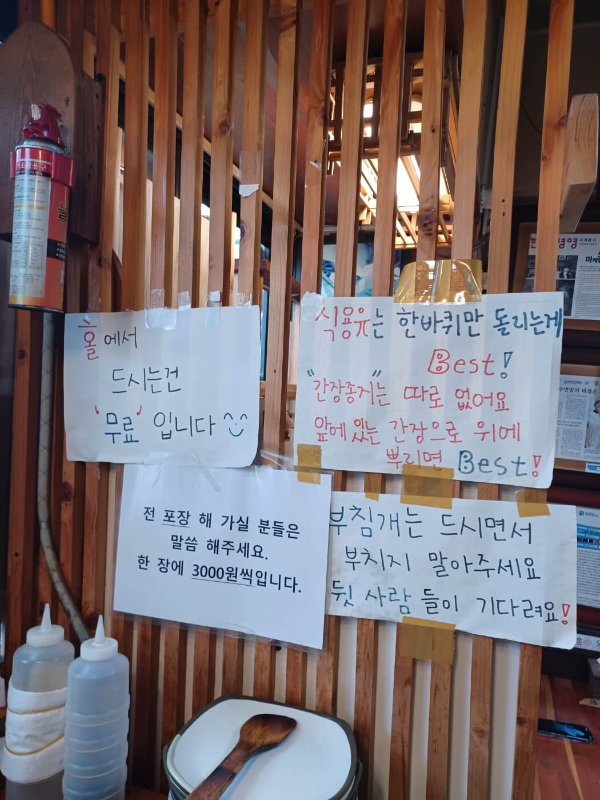 홀에서
드시는건
'무료' 입니다
식용유는 한바퀴만 돌리는게
Best!
"간장종지"는 따로 없어요
앞에 있는 간장으로 위에
뿌리면 Best!
전 포장 해 가실 분들은
말씀 해주세요.
한 장에 3000원씩입니다.
부침개는 드시면서
부치지 말아주세요
뒷 사람 들이 기다려요!